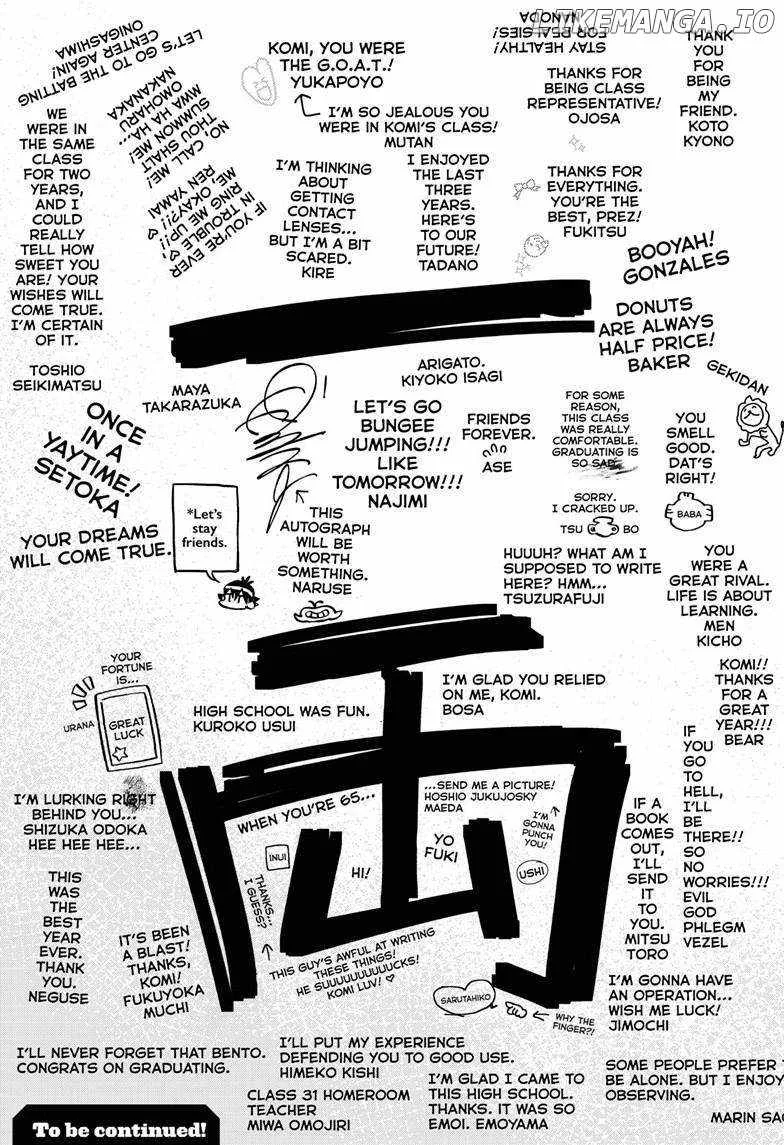 LIKEMANGA.IO
LET'S GO TO THE BATTING
CENTER AGAIN!
ONIGASHIMA
KOMI, YOU WERE
THE G.O.A.T.!
YUKAPOYO
STAY HEALTHY!
FOR REALSIES!
NANODA
THANK
YOU
FOR
BEING
MY
FRIEND.
KOTO
KYONO
THANKS FOR
BEING CLASS
REPRESENTATIVE!
OJOSA
WE
WERE IN
THE SAME
CLASS
FOR TWO
YEARS,
AND I
COULD
REALLY
TELL HOW
SWEET YOU
ARE! YOUR
WISHES WILL
COME TRUE.
I'M CERTAIN
OF IT.
TOSHIO
SEIKIMATSU
NO, CALL ME!
THOU SHALT
SUMMON ME!
MWA HA HA...
OMOHARU
NAKANAKA
I'M SO JEALOUS YOU
WERE IN KOMI'S CLASS!
MUTAN
IF YOU'RE EVER
IN TROUBLE,
RING ME UP!!
ME, OKAY?!!
REN YAMAI
I'M THINKING
ABOUT
GETTING
CONTACT
LENSES...
BUT I'M A BIT
SCARED.
KIRE
I ENJOYED
THE LAST
THREE
YEARS.
HERE'S
TO OUR
FUTURE!
TADANO
THANKS FOR
EVERYTHING.
YOU'RE THE
BEST, PREZ!
FUKITSU
BOOYAH!
GONZALES
DONUTS
ARE ALWAYS
HALF PRICE!
BAKER
MAYA
TAKARAZUKA
ARIGATO.
KIYOKO ISAGI
GEKIDAN
ONCE
IN A
YAYTIME!
SETOKA
LET'S GO
BUNGEE
JUMPING!!!
LIKE
TOMORROW!!!
NAJIMI
FRIENDS
FOREVER.
ASE
FOR SOME
REASON,
THIS CLASS
WAS REALLY
COMFORTABLE.
GRADUATING IS
SO SAD.
YOU
SMELL
GOOD.
DAT'S
RIGHT!
BABA
YOUR DREAMS
WILL COME TRUE.
*Let's
stay
friends.
THIS
AUTOGRAPH
WILL BE
WORTH
SOMETHING.
NARUSE
SORRY.
I CRACKED UP.
TSU BO
HUUUH? WHAT AM I
SUPPOSED TO WRITE
HERE? HMM...
TSUZURAFUJI
YOU
WERE A
GREAT RIVAL.
LIFE IS ABOUT
LEARNING.
MEN
KICHO
YOUR
FORTUNE
IS...
URANA
GREAT
LUCK
HIGH SCHOOL WAS FUN.
KUROKO USUI
I'M GLAD YOU RELIED
ON ME, KOMI.
BOSA
KOMI!!
THANKS
FOR A
GREAT
YEAR!!!
BEAR
IF
YOU
GO
TO
HELL,
I'LL
BE
THERE!!
SO
NO
WORRIES!!!
EVIL
GOD
PHLEGM
VEZEL
I'M LURKING RIGHT
BEHIND YOU...
SHIZUKA ODOKA
HEE HEE HEE...
WHEN YOU'RE 65...
...SEND ME A PICTURE!
HOSHIO JUKUJOSKY
MAEDA
I'M
GONNA
PUNCH
YOU!
USHI
IF A
BOOK
COMES
OUT,
I'LL
SEND
IT
TO
YOU.
MITSU
TORO
INUI
HI!
YO
FUKI
THANKS...
I GUESS?
THIS
WAS
THE
BEST
YEAR
EVER.
THANK
YOU.
NEGUSE
IT'S BEEN
A BLAST!
THANKS,
KOMI!
FUKUYOKA
MUCHI
THIS GUY'S AWFUL AT WRITING
THESE THINGS!
HE SUUUUUUUUUCKS!
KOMI LUV!
SARUTAHIKO
WHY THE
FINGER?!
I'M GONNA HAVE
AN OPERATION...
WISH ME LUCK!
JIMOCHI
I'LL NEVER FORGET THAT BENTO.
CONGRATS ON GRADUATING.
I'LL PUT MY EXPERIENCE
DEFENDING YOU TO GOOD USE.
HIMEKO KISHI
CLASS 31 HOMEROOM
TEACHER
MIWA OMOJIRI
I'M GLAD I CAME TO
THIS HIGH SCHOOL.
THANKS. IT WAS SO
EMOI. EMOYAMA
SOME PEOPLE PREFER
BE ALONE. BUT I ENJOY
OBSERVING.
MARIN
To be continued!